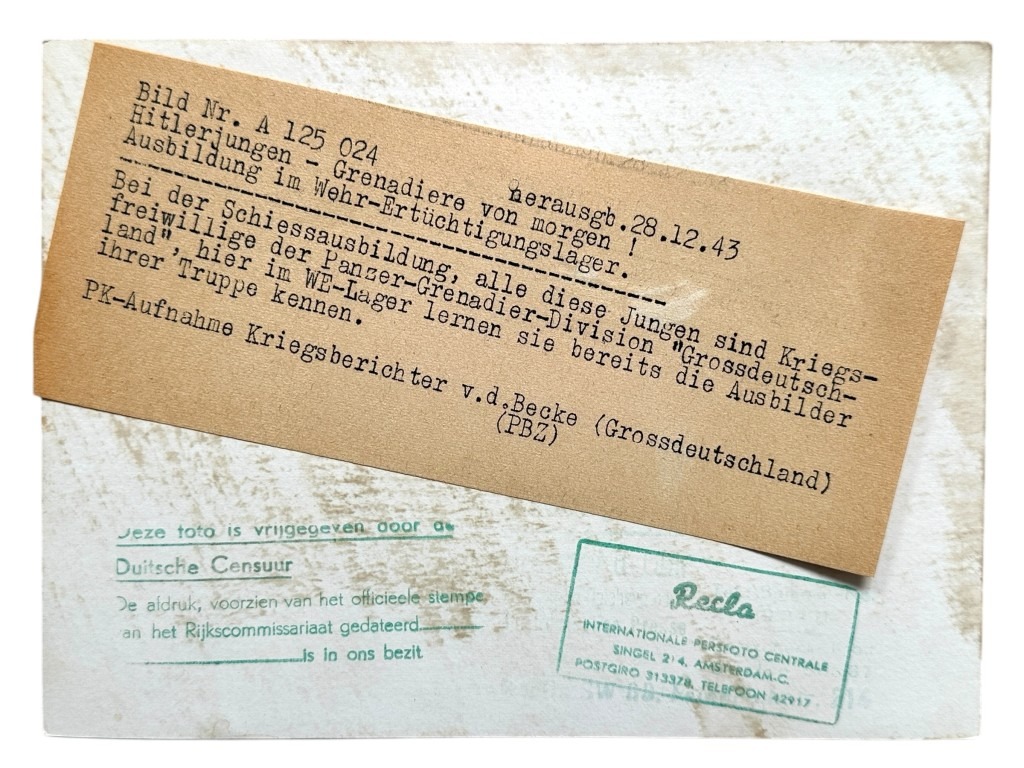 Bild Nr. A 125 024
herausgb.28.12.43
Hitlerjungen - Grenadiere von morgen !
Ausbildung im Wehr-Ertüchtigungslager.
Bei der Schiessausbildung, alle diese Jungen sind Kriegs-
freiwillige der Panzer-Grenadier-Division "Grossdeutsch-
land", hier im WE-Lager lernen sie bereits die Ausbilder
ihrer Truppe kennen.
PK-Aufnahme Kriegsberichter v.d.Becke (Grossdeutschland)
(PBZ)
Deze foto is vrijgegeven door de
Duitsche Censuur
De afdruk, voorzien van het officieele stempel
van het Rijkscommissariaat gedateerd
is in ons bezit
Recla
INTERNATIONALE PERSFOTO CENTRALE
SINGEL 214, AMSTERDAM-C.
POSTGIRO 313378, TELEFOON 42917